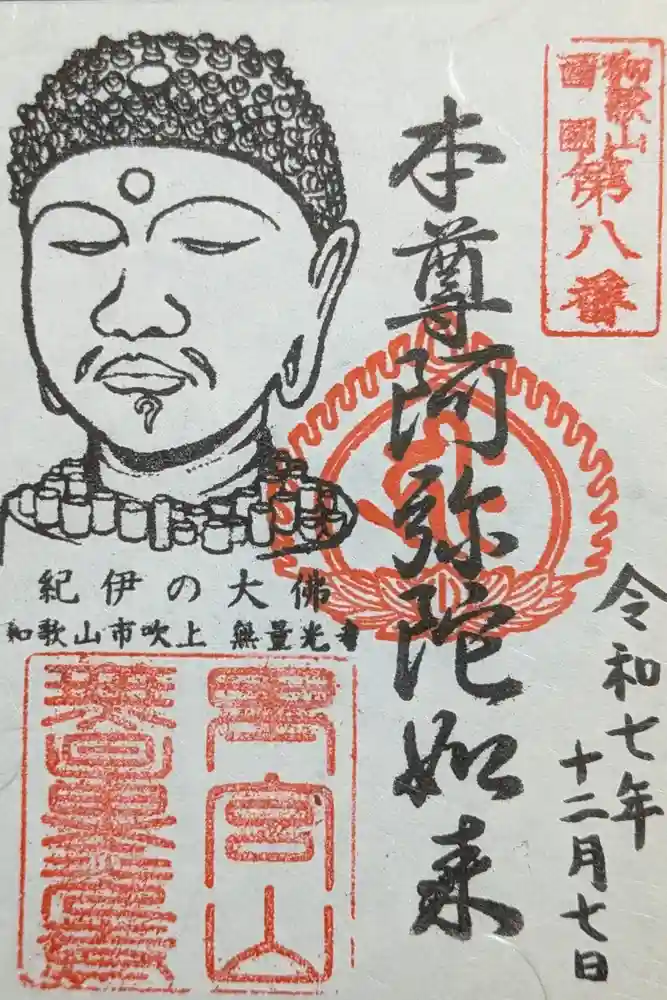 和歌山
西国
第八番
本尊阿弥陀如来
令和七年
十二月七日
紀伊の大佛
和歌山市吹上 無量光寺